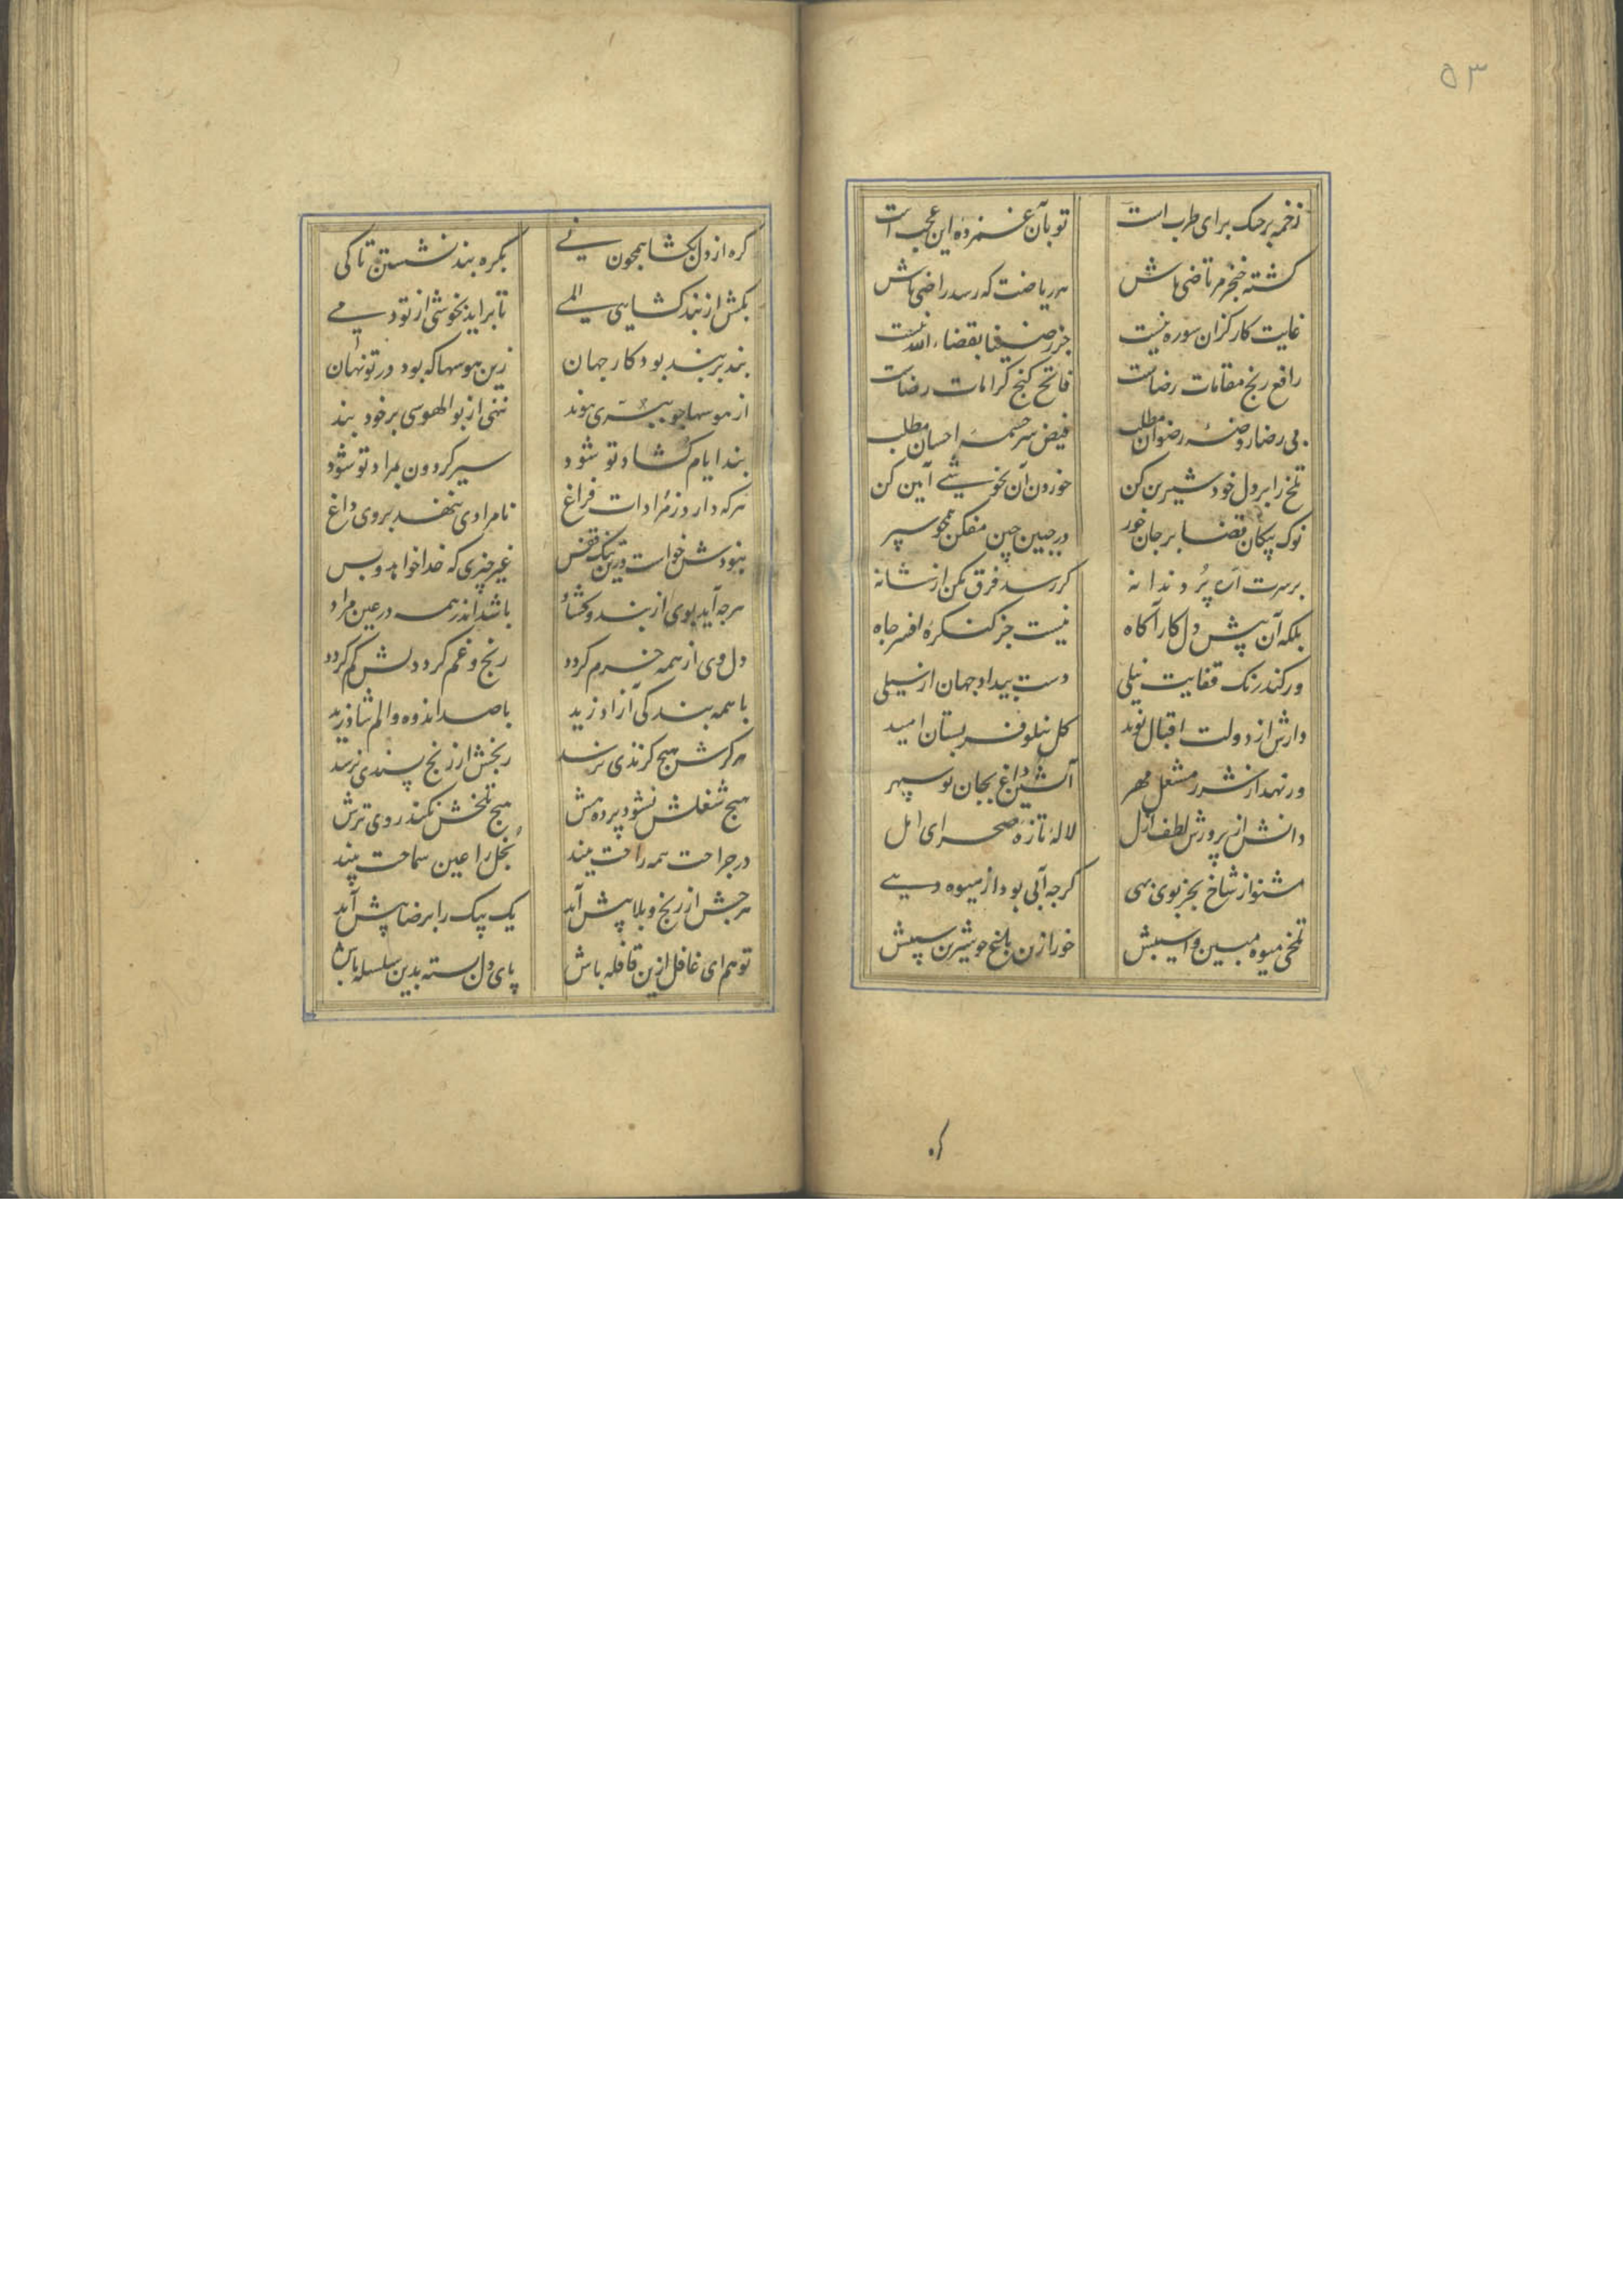 ۵۳
زخمه بر چنک برای طرب است تو بآن غمزده این عجب است
کشته خنجر مرتاضی باش هر ریاضت که رسد راضی باش
غایت کار کزان سوره نیست جز رضینا بقضاء الله نیست
رافع رنج مقامات رضاست فاتح کنج کرامات رضاست
بی رضا روضهٔ رضوان مطلب فیض سرچشمه احسان مطلب
تلخ را بر دل خود شیرین کن خوردن آن بخوشی آیین کن
نوک پیکان قضا بر جان خور در جبین چین مفکن همچو سپر
بر سرت اره پر دندانه کر رسد فرق مکن از شانه
بلکه آن پیش دل کار آکاه نیست جز کنکره افسر جاه
ور کند رنک قفایت نیلی دست بیداد جهان از سیلی
دارش از دولت اقبال نوید کل نیلوفر بستان امید
ور نهد از شرر مشعل مهر آتشین داغ بجان تو سپهر
دانش از پرورش لطف ازل لاله تازه صحرای امل
مشنو از شاخ بجز بوی بهی کرچه آبی بود از میوه دهی
تلخی میوه مبین واسیبش خور ازن تلخ چو شیرین سیبش
کره
کره از دل بکشا همچون نی بکره بند نشستن تا کی
بکش از بند کشایی المی تا براید بخوشی از تو دمی
بند بر بند بود کار جهان زین هوسها که بود در تو نهان
از هوسها چو ببری پیوند ننهی از بوالهوسی بر خود بند
بند ایام کشاد تو شود سیر کردون بمراد تو شود
هرکه دارد ز مرادات فراغ نامرادی ننهد بروی داغ
نبودش خواست درین تنک قفس غیر چیزی که خدا خواهد و بس
هرچه آید بوی از بند و کشاد باشد اندر همه در عین مراد
دل وی از همه خرم کردد رنج و غم کرد دلش کم کردد
با همه بندکی آزاد زید با صد اندوه و الم شاد زید
هرکزش هیچ کزندی نرسد رنجش از رنج پسندی نرسد
هیچ شغلش نشود پرده هش هیچ تلخش نکند روی ترش
در جراحت همه راحت بیند بخل را عین سماحت بیند
هرچش از رنج و بلا پیش آید یک بیک را برضا پیش آید
تو هم ای غافل ازین قافله باش پای دل بسته بدین سلسله باش